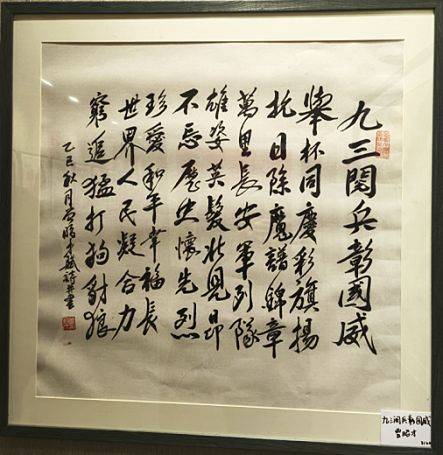 九三閱兵彰國威
舉杯同慶彩旗揚
抗日除魔譜錦章
萬里長安軍列隊
雄姿英發壯見昂
不忘歷史懷先烈
珍愛和平幸福長
世界人民凝合力
窮追猛打狗豺狼
乙巳秋月昭才詩并書
九三阅兵彰国威
昭才